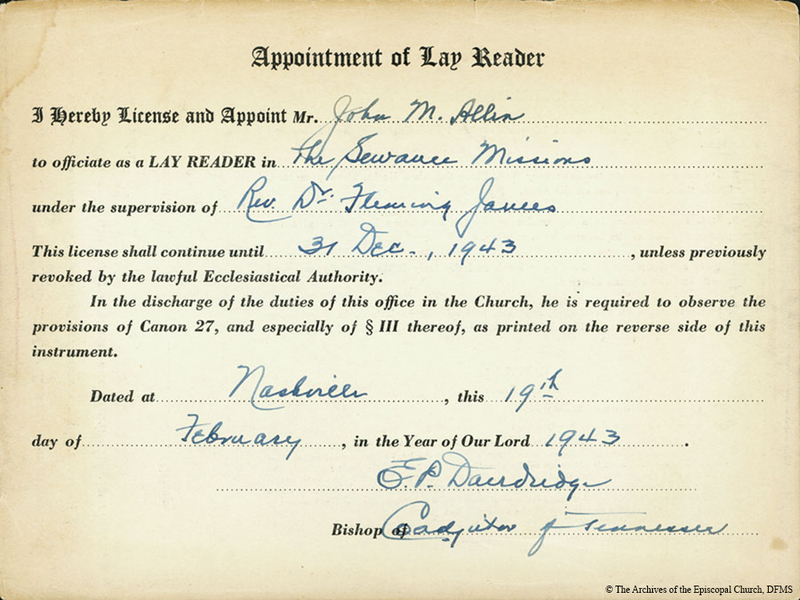 Appointment of Lay Reader
I Hereby License and Appoint Mr. John M. Allin
to officiate as a LAY READER in the Sewanee Missions
under the supervision of Rev. Dr. Fleming James
This license shall continue until 31 Dec., 1943, unless previously
revoked by the lawful Ecclesiastical Authority.
In the discharge of the duties of this office in the Church, he is required to observe the
provisions of Canon 27, and especially of § III thereof, as printed on the reverse side of this
instrument.
Dated at Nashville, this 19th
day of February, in the Year of Our Lord 1943.
E.P. Dandridge
Bishop of Coadjutor of Tennessee
© The Archives of the Episcopal Church, DFMS